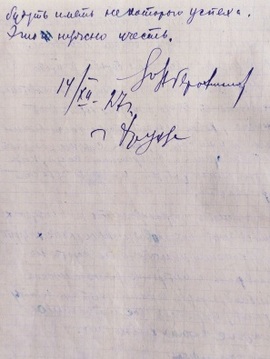 будуть иметь некоторого успеха.
Это нужно учесть.
14/XII-27г.
г Фрунзе